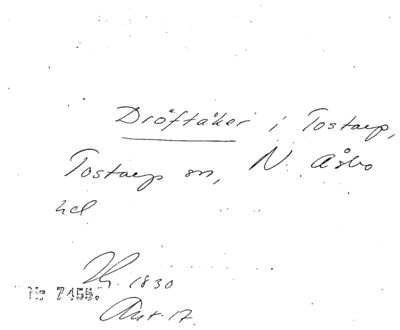 Dröftåker i Tostarp,
Tostarp sn, N. Åsbo
hd
1830
Nr 7455.
Akt. 17.